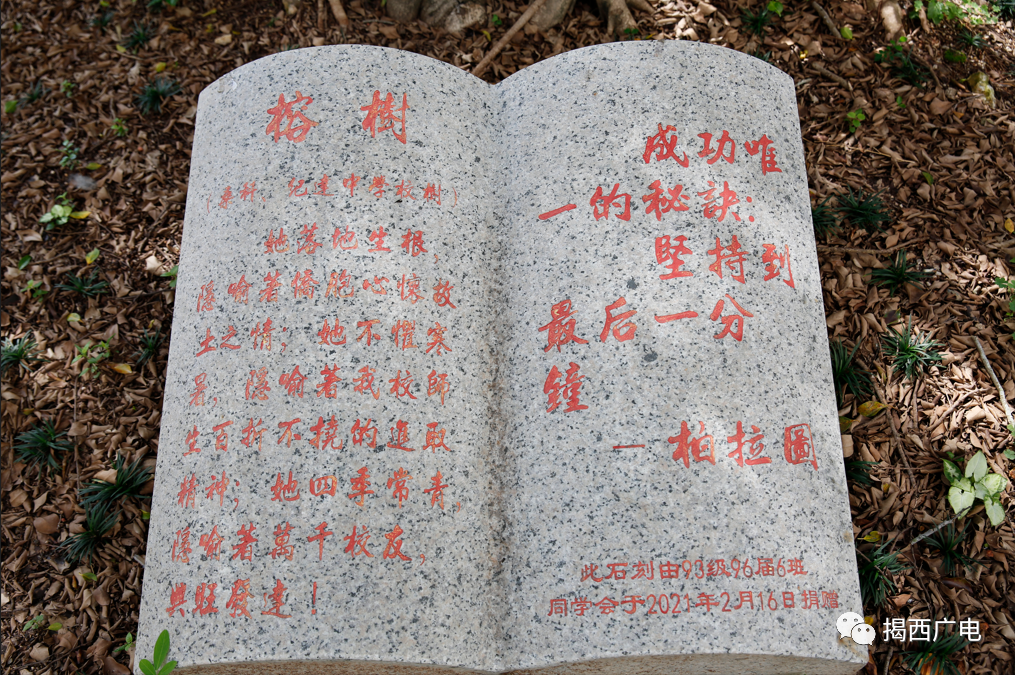 榕 樹
（桑科，紀達中學校樹）
她落地生根，
隱喻著僑胞心懷故
土之情；她不懼寒
暑，隱喻著我校師
生百折不撓的進取
精神；她四季常青，
隱喻著萬千校友，
興旺發達！
成功唯
一的秘訣：
堅持到
最后一分
鐘
— 柏拉圖
此石刻由93級96届6班
同学会于2021年2月16日捐赠
揭西广电